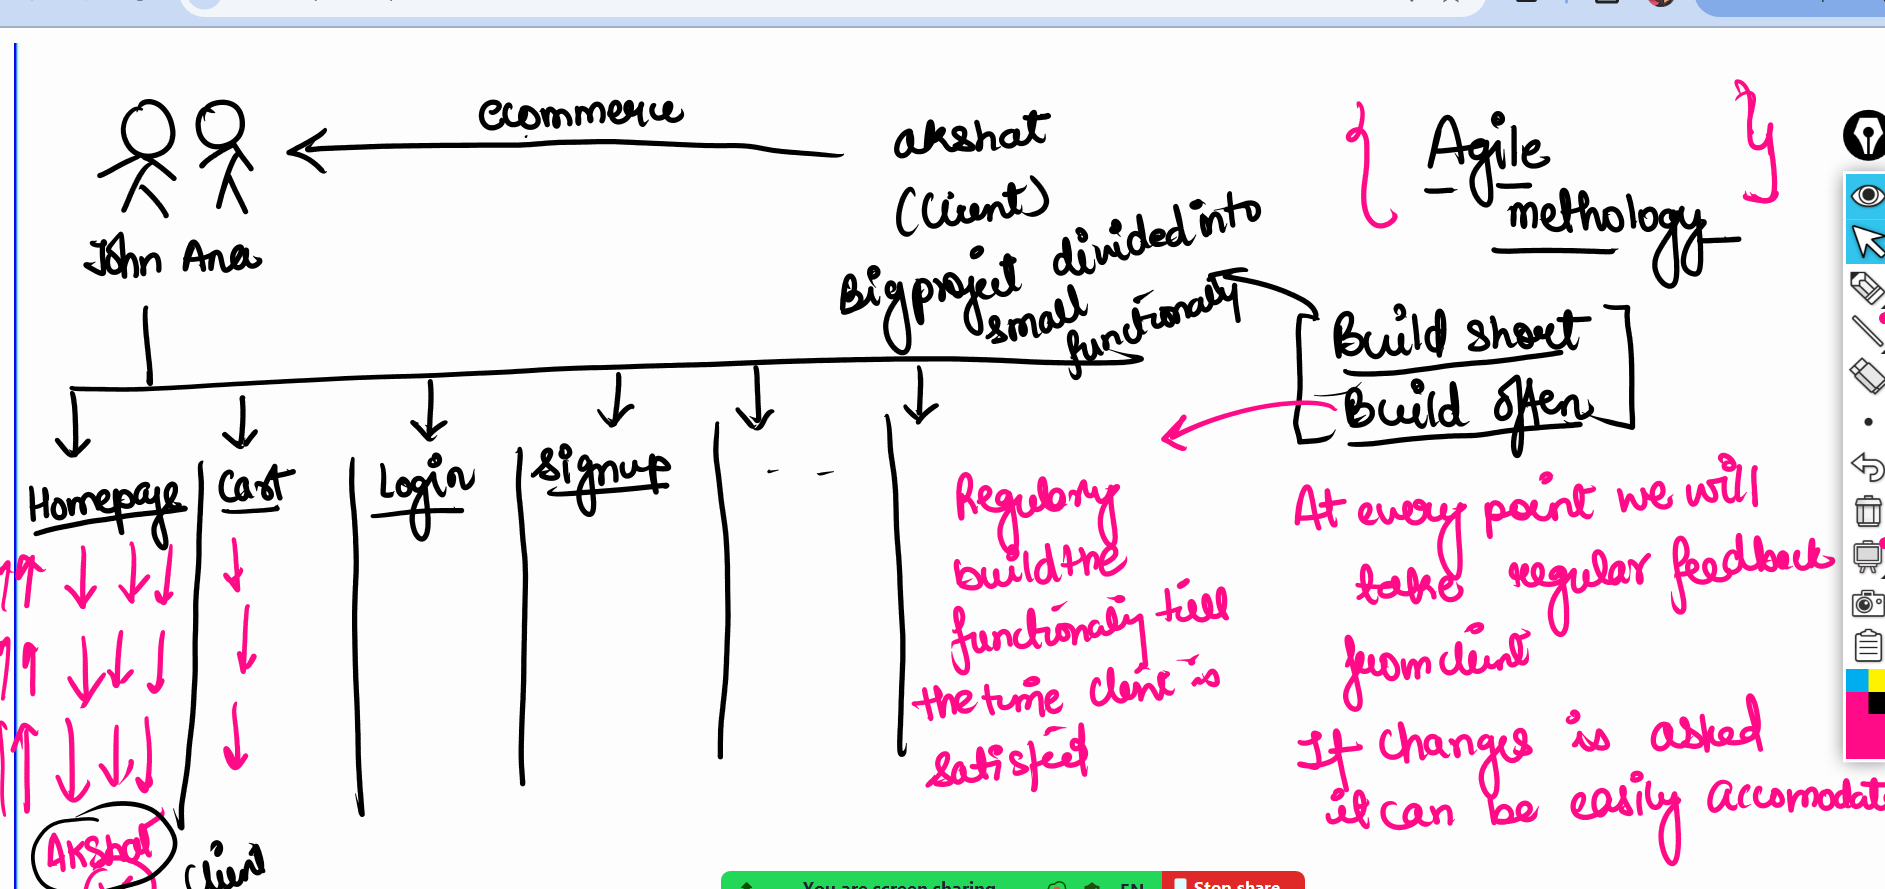 ecommerce
akshat
(Client)
John Ana
{ Agile }
methology
Big project divided into
small
functionally
Build short
Build often
Homepage
Cart
Login
Signup
- -
Regulary
build the
functionaly till
the time client is
satisfied
At every point we will
take regular feedback
from client
If changes is asked
it can be easily accomodat
Akshat
Client
You are screen sharing
EN
Stop share